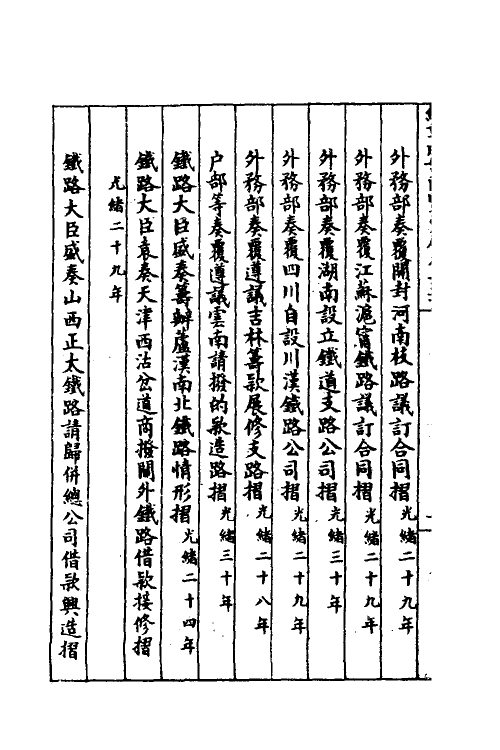 外務部奏覆開封河南枝路議訂合同摺光緒二十九年
外務部奏覆江蘇滬甯鐵路議訂合同摺光緒二十九年
外務部奏覆湖南設立鐵道支路公司摺光緒三十年
外務部奏覆四川自設川漢鐵路公司摺光緒二十九年
外務部奏覆遵議吉林籌款展修支路摺光緒二十八年
户部等奏覆遵議雲南請撥的款造路摺光緒三十年
鐵路大臣盛奏籌辦蘆漢南北鐵路情形摺光緒二十四年
鐵路大臣袁奏天津西沽岔道商撥關外鐵路借款接修摺
光緒二十九年
鐵路大臣盛奏山西正太鐵路請歸併總公司借款興造摺